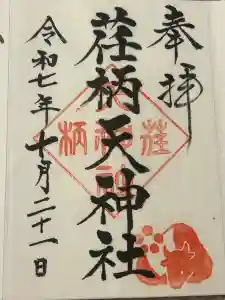 奉拝
荏柄天神社
令和七年十月二十一日
荏柄